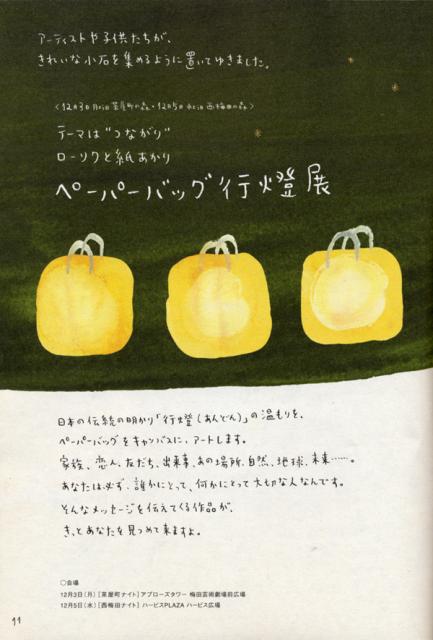 アーティストや子供たちが、
きれいな小石を集めるように置いてゆきました。
〈12月3日(月)は茶屋町の森・12月5日(水)は西梅田の森〉
テーマは“つながり”
ローソクと紙あかり
ペーパーバッグ行燈展
日本の伝統の明かり「行燈(あんどん)」の温もりを、
ペーパーバッグをキャンバスに、アートします。
家族、恋人、友だち、出来事、あの場所、自然、地球、未来……。
あなたは必ず、誰かにとって、何かにとって大切な人なんです。
そんなメッセージを伝えてくる作品が、
きっとあなたを見つめて来ますよ。
○会場
12月3日(月)[茶屋町ナイト]アプローズタワー 梅田芸術劇場前広場
12月5日(水)[西梅田ナイト]ハービスPLAZA ハービス広場
11